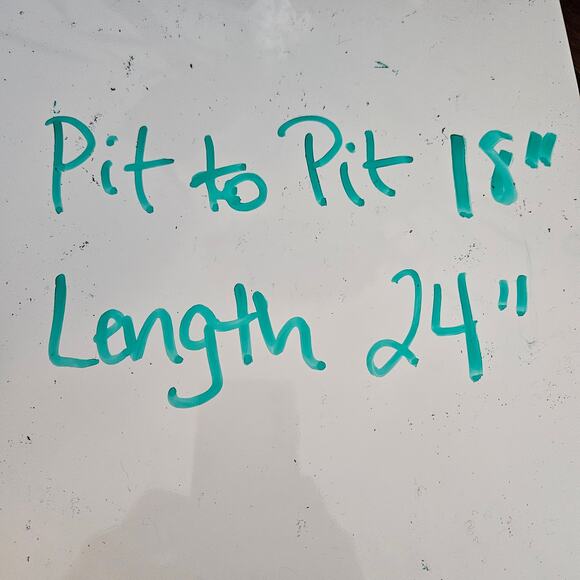 Pit to Pit 18"
Length 24"